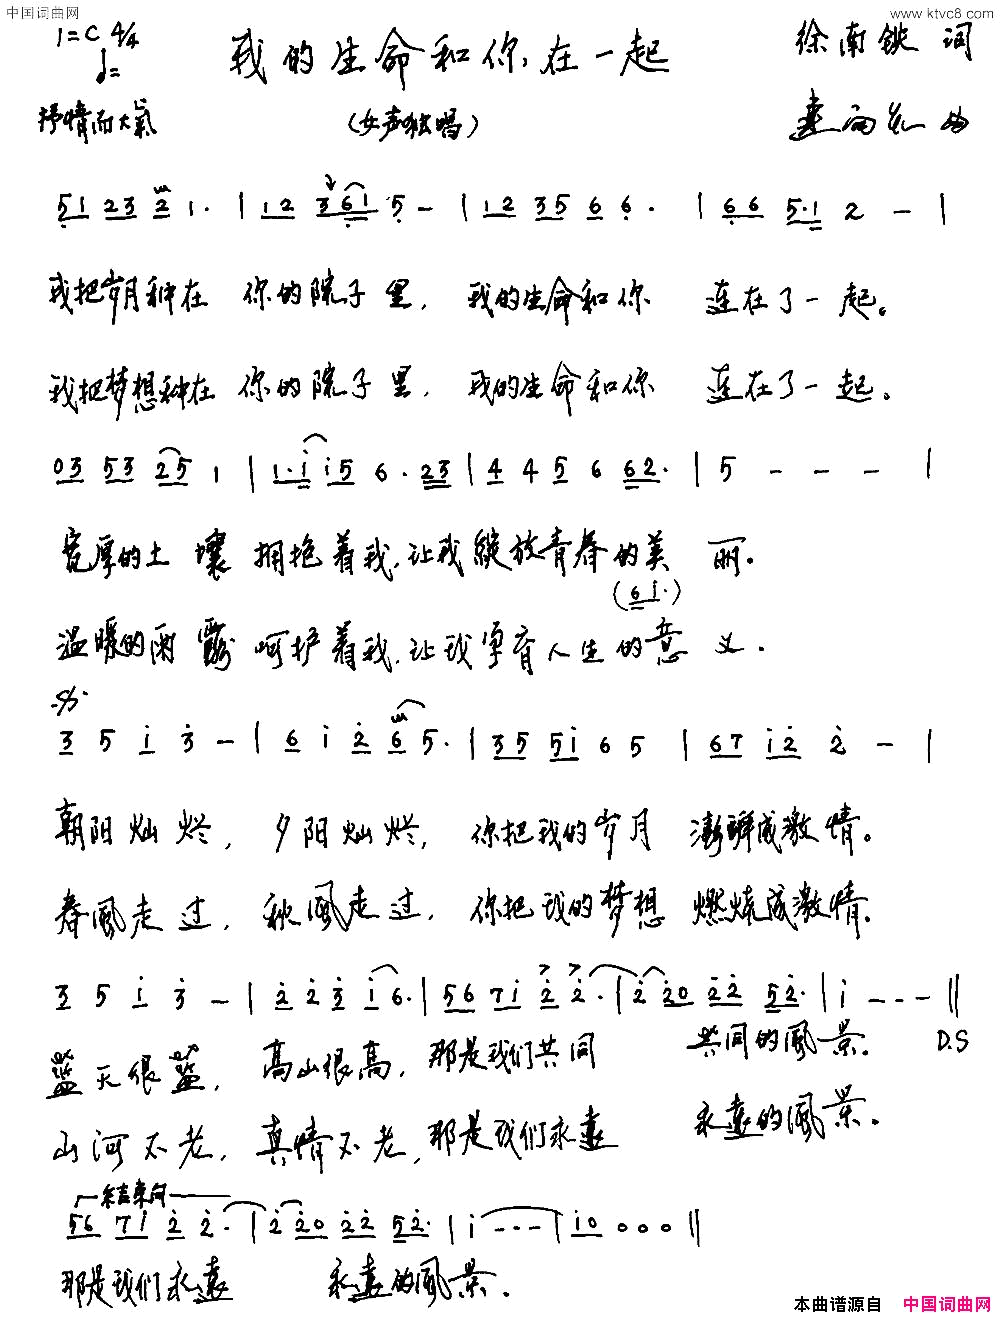 中国词曲网 www.ktvc8.com
1=C 4/4 我的生命和你在一起 徐南铁 词
抒情而大氣 (女声独唱) 曲
5 1 2 3 2 1· | 1 2 3 6 1 5 - | 1 2 3 5 6 6· | 6 6 5·1 2 - |
我把岁月种在 你的院子里, 我的生命和你 连在了一起。
我把梦想种在 你的院子里, 我的生命和你 连在了一起。
0 3 5 3 2 5 1 | 1·i i 5 6· 2 3 | 4 4 5 6 6 2· | 5 - - - |
宽厚的土 壤 拥抱着我,让我綻放青春的美 丽.
(6 i·)
温暖的雨 露 呵护着我,让我孕育人生的意 义.
3 5 i 3 - | 6 i 2 6 5· | 3 5 5 i 6 5 | 6 7 i 2 2 - |
朝阳灿烂, 夕阳灿烂, 你把我的岁月 澎湃成激情。
春風走过, 秋風走过, 你把我的梦想 燃烧成激情.
3 5 i 3 - | 2 2 3 i 6· | 5 6 7 i 2 2· | 2 2 0 2 2 5 2· | i - - - ||
蓝天很蓝, 高山很高, 那是我们共同 共同的風景. D.S
山河不老, 真情不老, 那是我们永遠 永遠的風景.
结束句
5 6 7 i 2 2· | 2 2 0 2 2 5 2· | i - - - | i 0 0 0 0 ||
那是我们永遠 永遠的風景.
本曲谱源自 中国词曲网